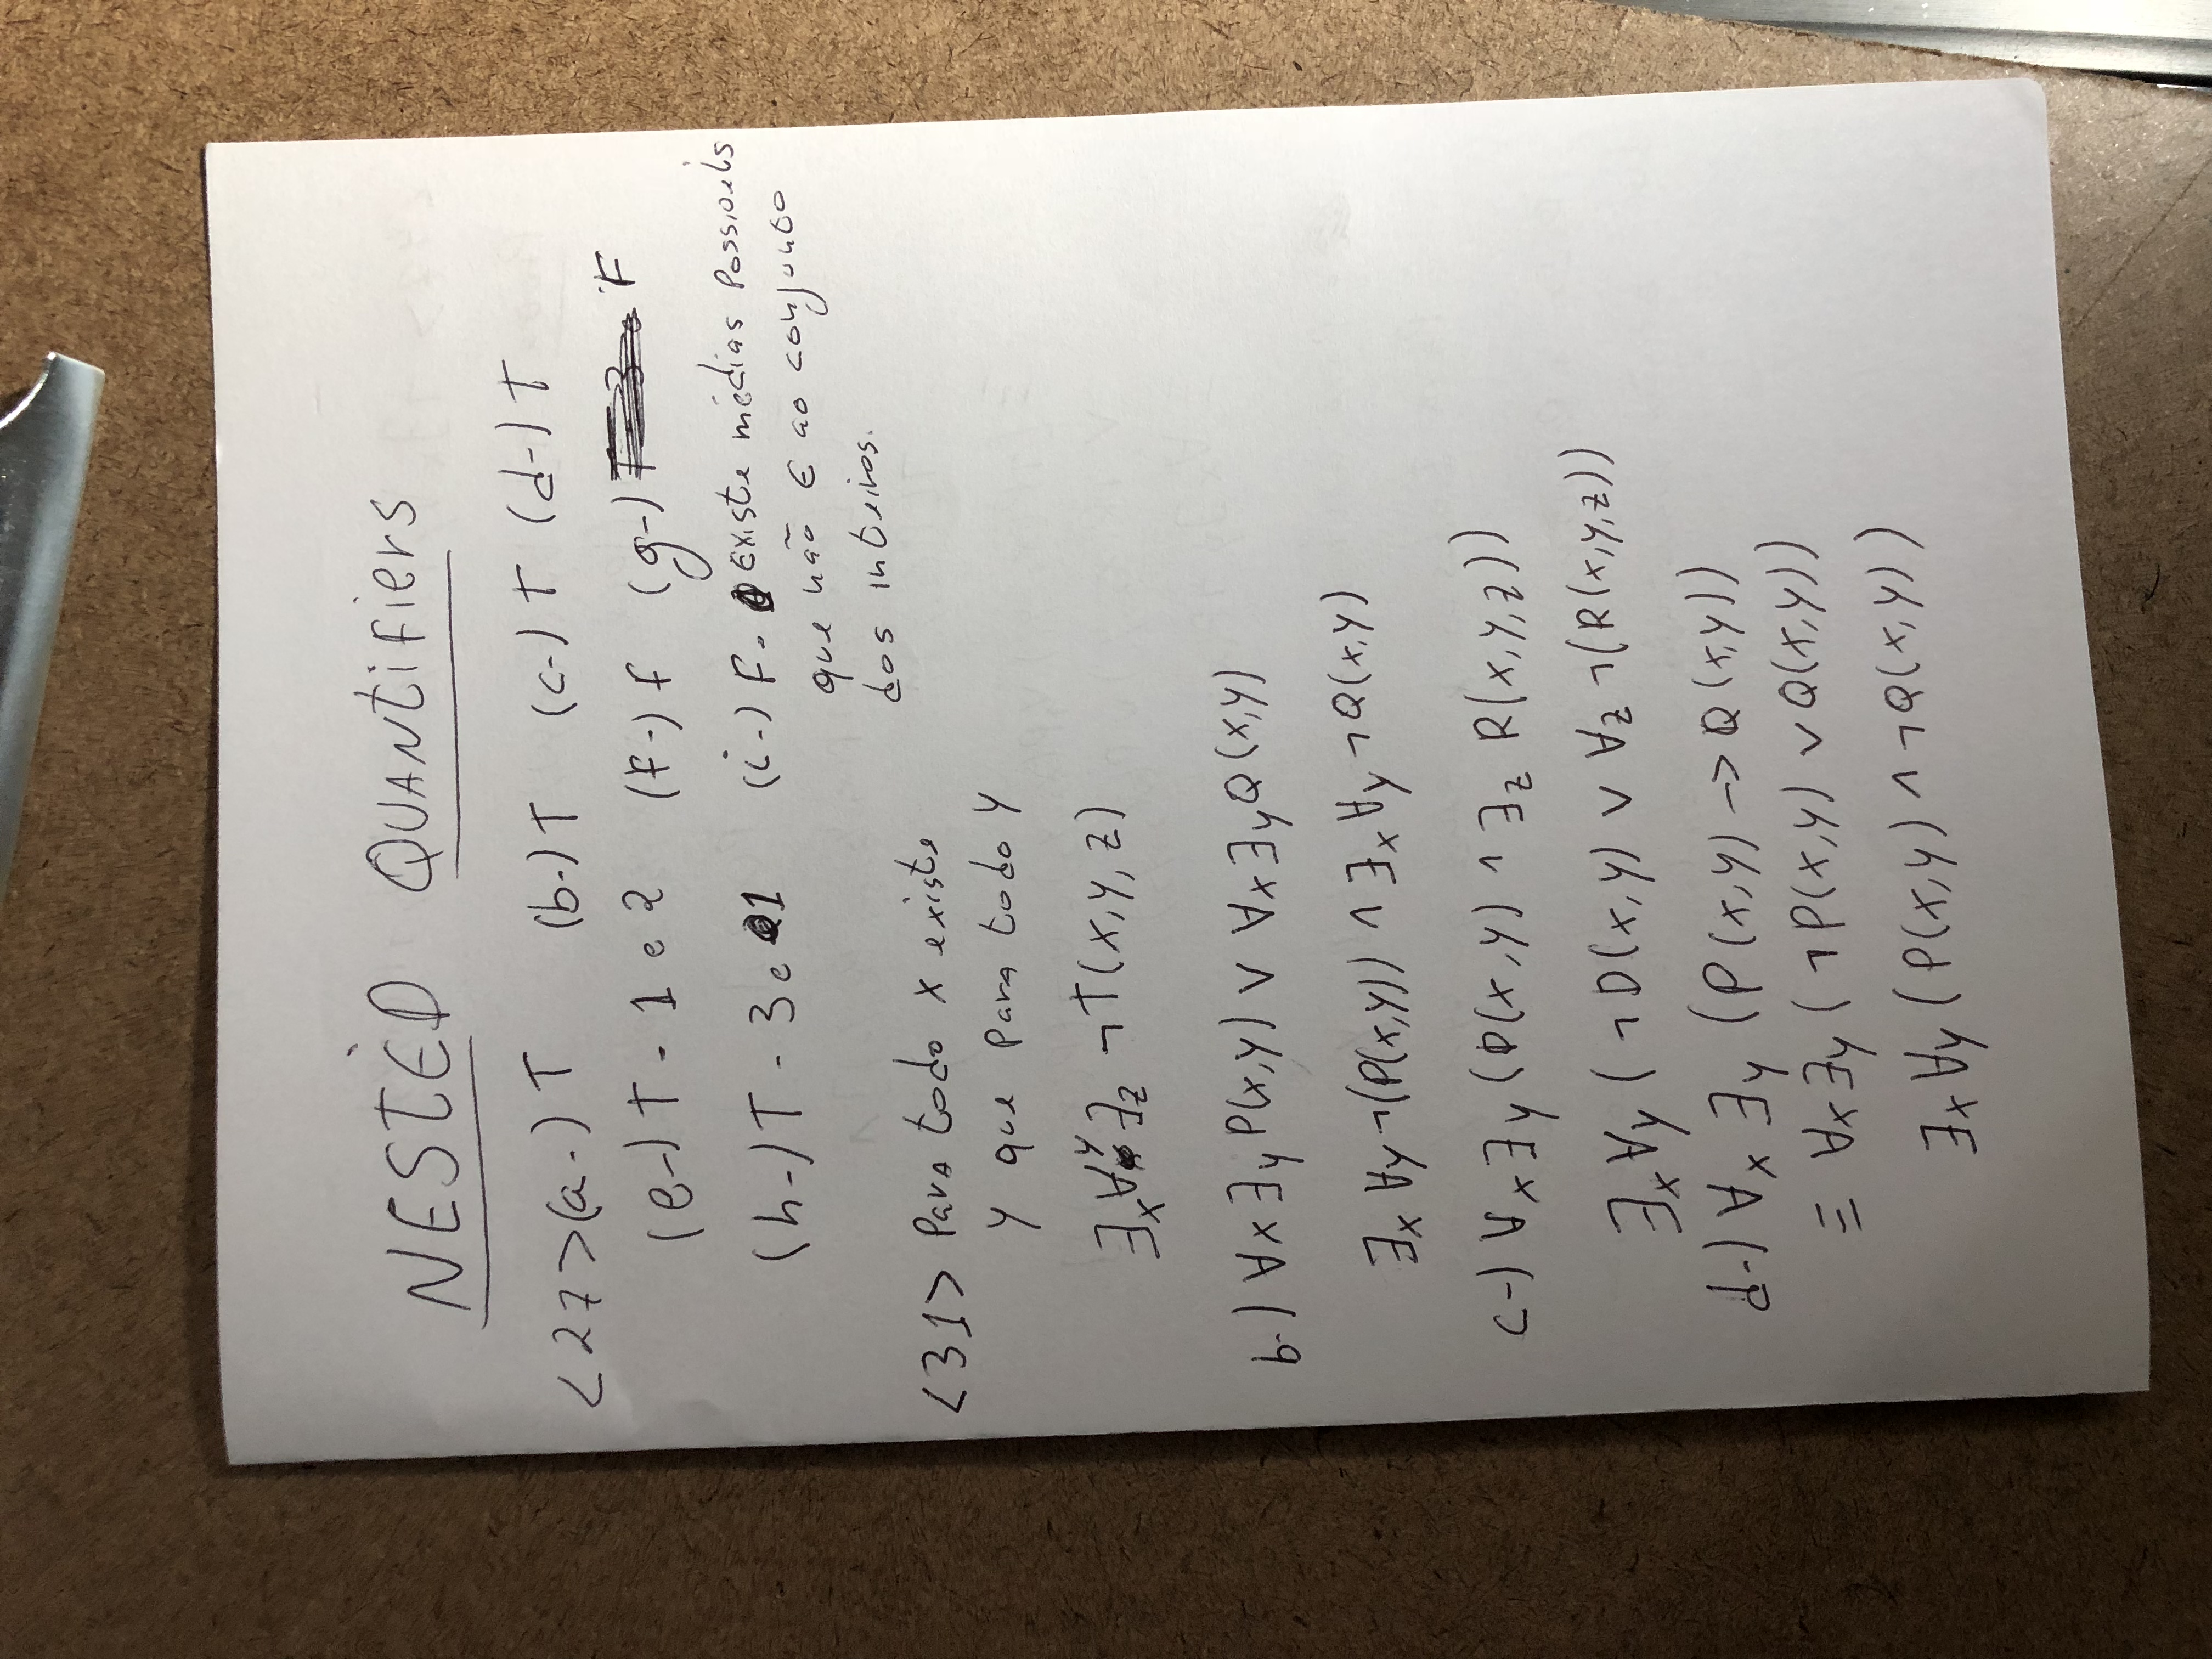 NESTED QUANtifiers
<27>(a-) T (b-) T (c-) T (d-) T
(e-) T - 1 e 2 (f-) f (g-) F
(h-) T - 3 e 1 (i-) F. Existe médias possíveis
que não ∈ ao conjunto
dos inteiros.
<31> Para todo x existe
y que para todo y
∃x∀y∃z ¬T(x,y,z)
b-) ∀x∃yP(x,y) ∨ ∀x∃yQ(x,y)
∃x∀y¬(P(x,y)) ∧ ∃x∀y¬Q(x,y)
c-) ∀x∃y(P(x,y) ∧ ∃z R(x,y,z))
∃x∀y(¬P(x,y) ∨ ∀z ¬(R(x,y,z))
d-) ∀x∃y (P(x,y) -> Q(x,y))
≡ ∀x∃y(¬P(x,y) ∨ Q(x,y))
∃x∀y(P(x,y) ∧ ¬Q(x,y))